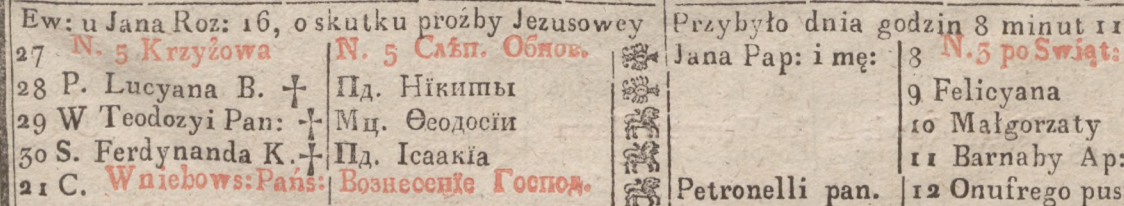 Ew: u Jana Roz: 16, o skutku proźby Jezusowey Przybyło dnia godzin 8 minut 11
27 N. 5 Krzyżowa N. 5 Слѣп. Обнов. Jana Pap: i mę: 8 N.3 po Swiąt:
28 P. Lucyana B. ✝ Пд. Нїкиты 9 Felicyana
29 W Teodozyi Pan: ✝ Мц. Ѳеодосїи 10 Małgorzaty
30 S. Ferdynanda K. ✝ Пд. Ісаакїа 11 Barnaby Ap:
21 C. Wniebows: Pańs: Вознесенїе Господ. Petronelli pan. 12 Onufrego pus